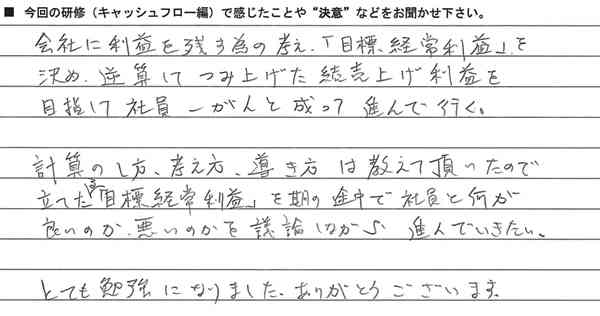 ■ 今回の研修(キャッシュフロー編)で感じたことや“決意”などをお聞かせ下さい。
会社に利益を残す為の考え、「目標、経常利益」を
決め、逆算して つみ上げた 結売上げ利益を
目指して 社員一がんと成って 進んで行く。
計算のし方、考え方、導き方 は 教えて頂いたので
立てた「目標経常利益」を期の途中で 社員と何が
良いのか、悪いのかを 議論しながら 進んでいきたい。
とても 勉強に なりました。ありがとうございます。